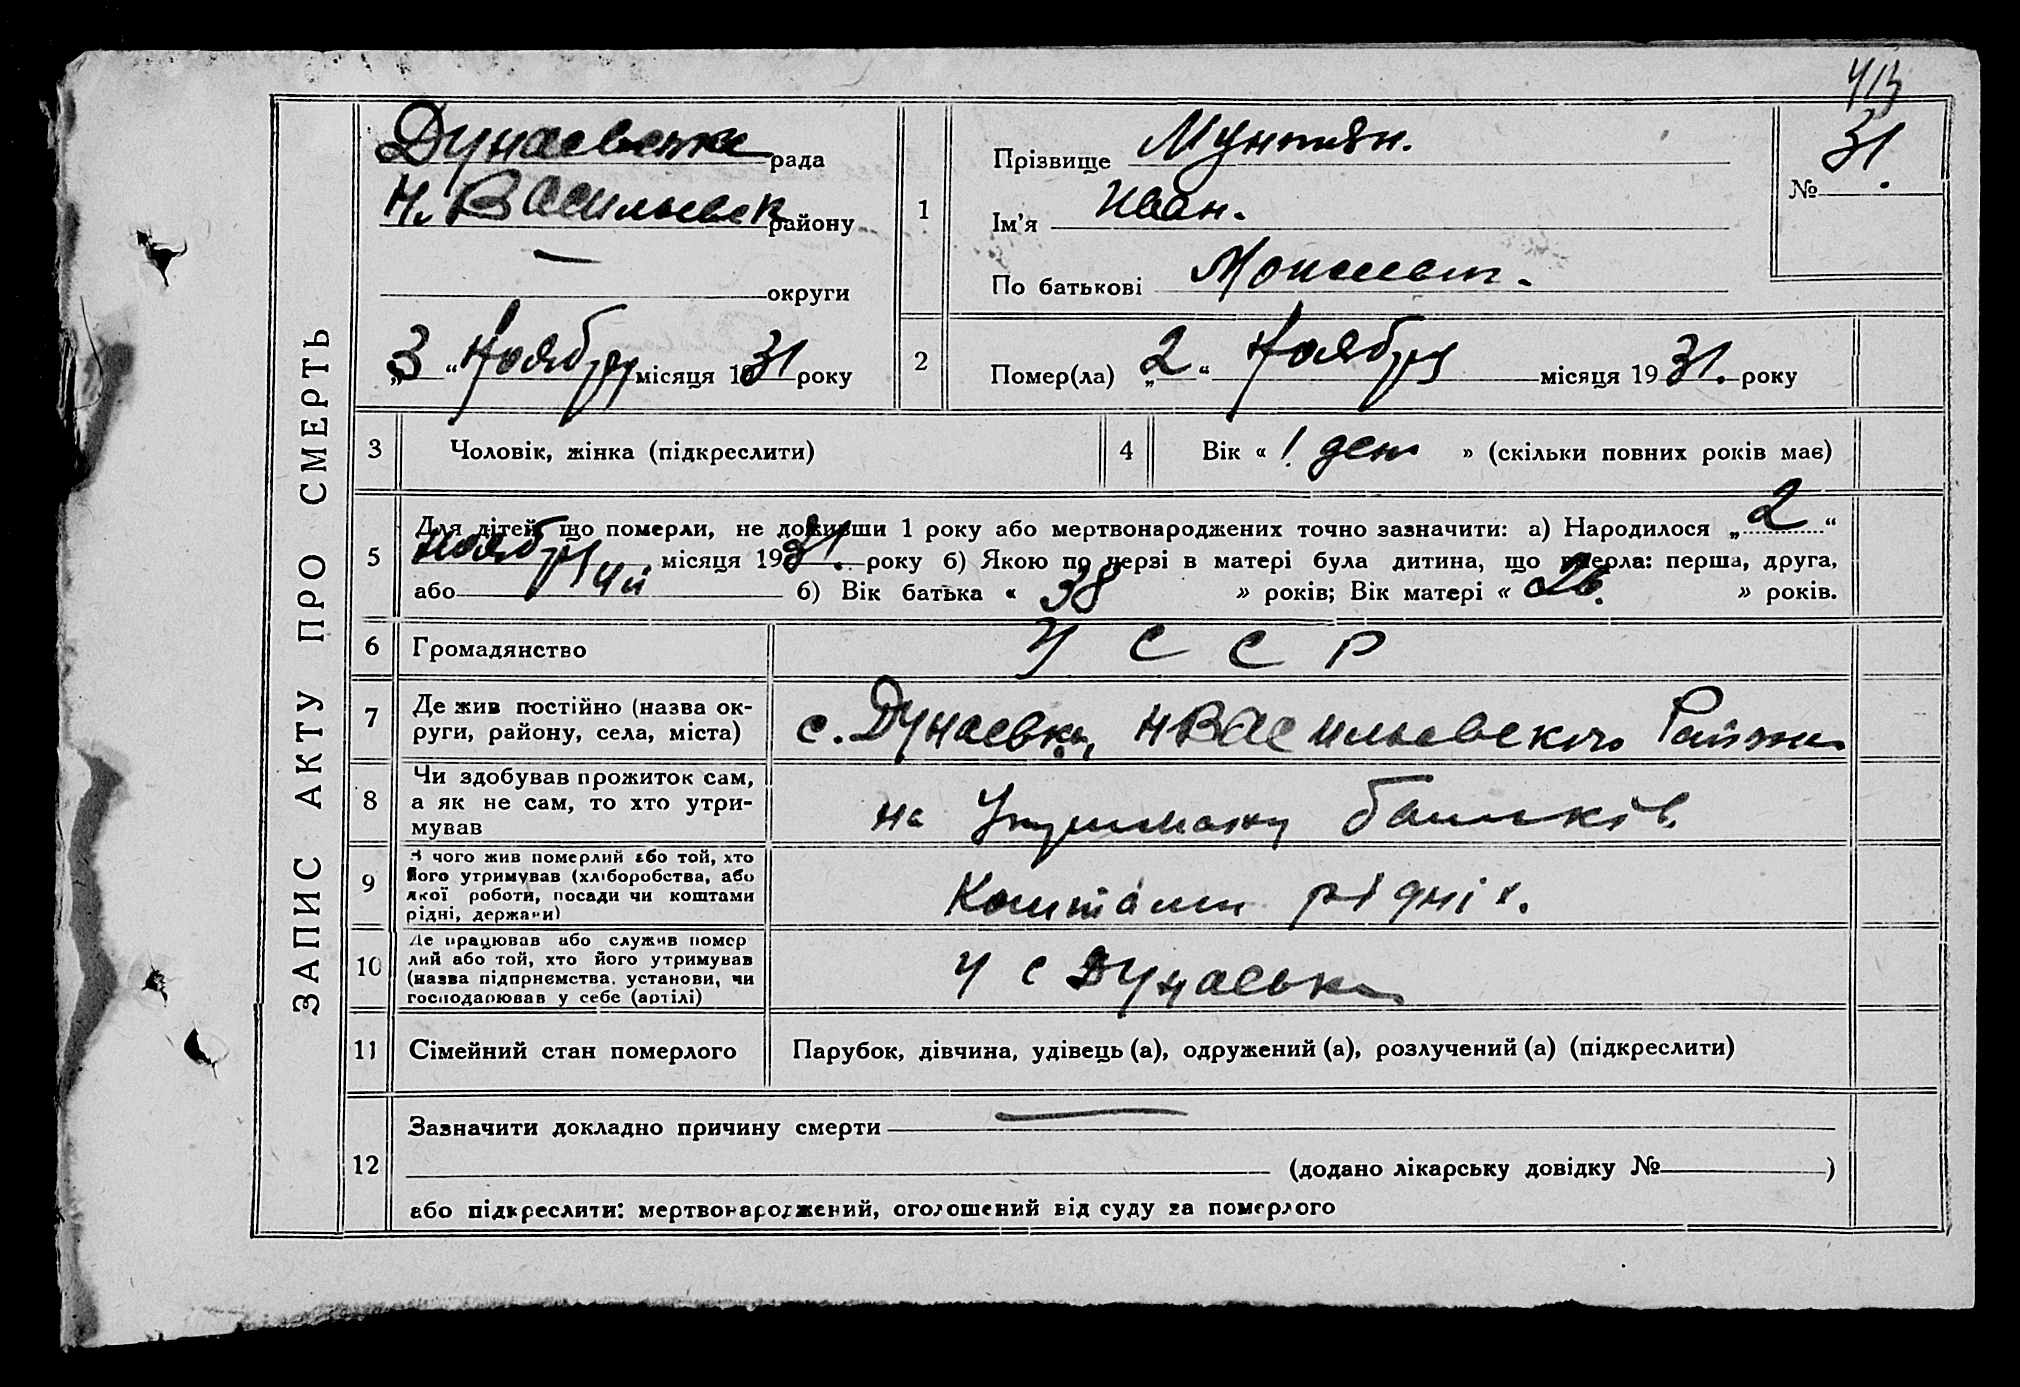 413
ЗАПИС АКТУ ПРО СМЕРТЬ
Дунаевська рада
Н. Васильевск району
округи
„3“ Ноября місяця 1931 року
1
Прізвище Мунтян.
Ім'я Иван.
По батькові Моисеев.
№ 31.
2
Помер(ла) „2“ Ноября місяця 1931. року
3 Чоловік, жінка (підкреслити)
4 Вік « 1 ден » (скільки повних років має)
5 Для дітей, що померли, не доживши 1 року або мертвонароджених точно зазначити: а) Народилося „2“
ноября місяця 1931. року б) Якою по черзі в матері була дитина, що вмерла: перша, друга,
або 4й б) Вік батька « 38 » років; Вік матері « 26. » років.
6 Громадянство У С С Р
7 Де жив постійно (назва ок-
руги, району, села, міста) с. Дунаевка, Н Васильевского Района
8 Чи здобував прожиток сам,
а як не сам, то хто утри-
мував на Утриманю батьків.
9 З чого жив померлий або той, хто
його утримував (хліборобства, або
якої роботи, посади чи коштами
рідні, держави) Коштами рідніх.
10 Де працював або служив помер
лий або той, хто його утримував
(назва підприємства, установи, чи
господарював у себе (артілі) У с Дунаевка
11 Сімейний стан померлого Парубок, дівчина, удівець (а), одружений (а), розлучений (а) (підкреслити)
12 Зазначити докладно причину смерти —
(додано лікарську довідку № )
або підкреслити: мертвонароджений, оголошений від суду за померлого